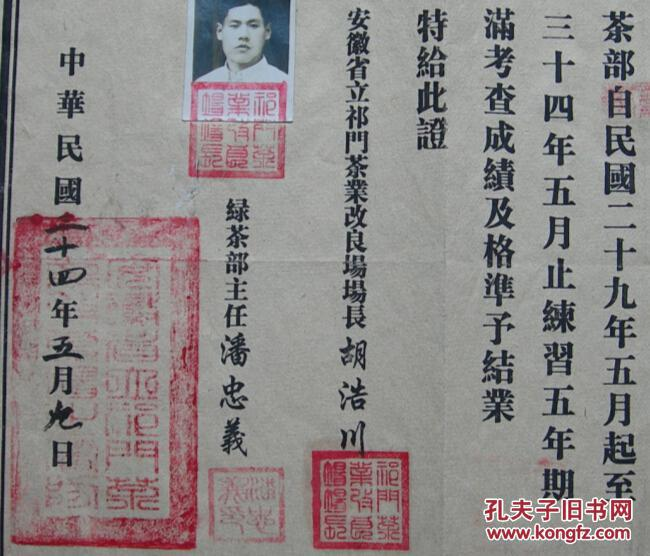 茶部自民國二十九年五月起至
三十四年五月止練習五年期
滿考查成績及格準予結業
特給此證
安徽省立祁門茶業改良場場長胡浩川
祁門茶業改良場場長
緑茶部主任潘忠義
潘忠義
祁門茶業改良場場長
中華民國三十四年五月九日
安徽省立祁門茶
孔夫子旧书网
www.kongfz.com